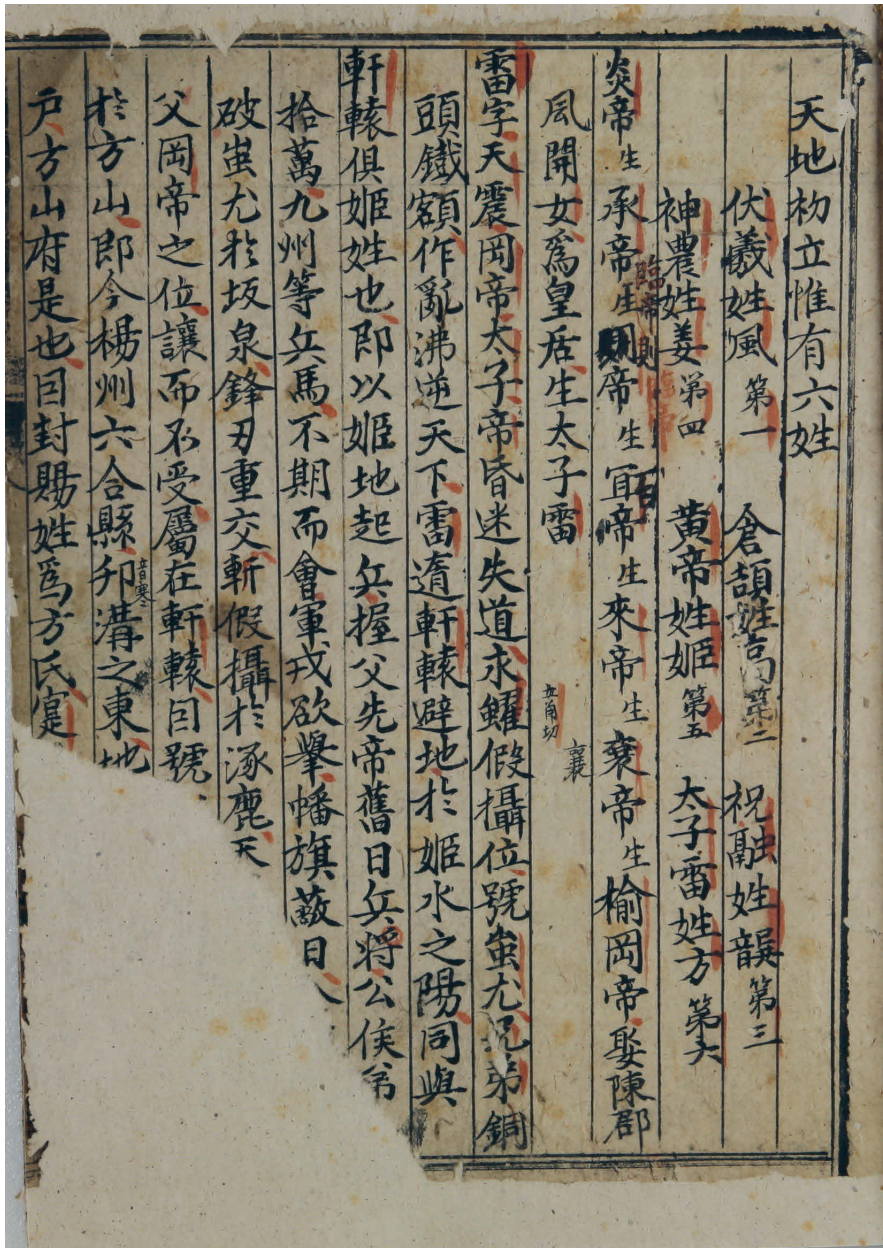 天地初立惟有六姓
伏羲姓風第一　倉頡姓高第二　祝融姓𩐳第三
神農姓姜第四　黃帝姓姬第五　太子雷姓方第六
炎帝生承帝生臨帝則帝生百帝生來帝生襄帝生榆岡帝娶陳郡
風開女為皇后生太子雷
雷字天震岡帝太子帝昏迷失道求鱓假攝位號蚩尤兄弟銅
頭鐵額作亂沸逆天下雷遁軒轅避地於姬水之陽同與
軒轅俱姬姓也即以姬地起兵握父先帝舊日兵將公侯
拾萬九州等兵馬不期而會軍戎欲舉幡旗蔽日
破蚩尤於坂泉鋒刃重交斬假攝於涿鹿天
父岡帝之位讓而不受屬在軒轅因號
於方山即今楊州六合縣邗音寒溝之東地
戶方山府是也因封賜姓為方氏寔